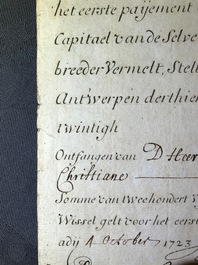 het eerste payement
Capitael van de Selve
breeder Vermelt, Stell
Antwerpen derthien
twintigh
Ontfangen van D Heer
Christiane
Somme van tweehondert
Wissel gelt voor het eerste
adij 4 October 1723